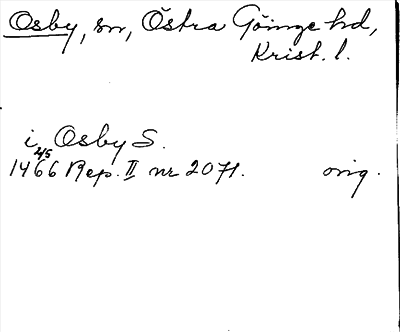 Osby, sn, Östra Göinge hd,
Krist. l.
i Osby S.
4/5
1466 Rep. II nr 2071. orig.